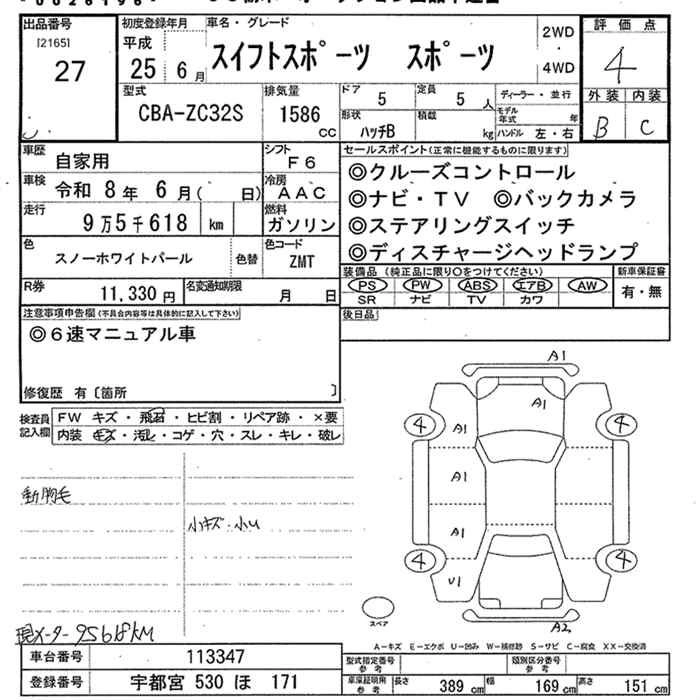 出品番号
[2165]
27
初度登録年月
平成
25 6月
車名・グレード
スイフトスポーツ スポーツ
2WD
4WD
評価点
4
外装 内装
B C
型式
CBA-ZC32S
排気量
1586
CC
ドア
5
定員
5 人
形状
ハッチB
積載
kg
ディーラー・並行
モデル年式
年
ハンドル 左・右
車歴
自家用
シフト
F6
車検
令和 8年 6月( 日)
冷房
AAC
走行
9万5千618 km
燃料
ガソリン
色
スノーホワイトパール
色替
色コード
ZMT
R券
11,330円
名変通知期限
月 日
セールスポイント(正常に機能するものに限ります)
◎クルーズコントロール
◎ナビ・TV ◎バックカメラ
◎ステアリングスイッチ
◎ディスチャージヘッドランプ
装備品(純正品に限り○をつけてください)
新車保証書
PS PW ABS エアB AW
SR ナビ TV カワ
有・無
後日品
注意事項申告欄(不具合内容等は具体的に記入して下さい)
◎6速マニュアル車
修復歴 有〔箇所 〕
検査員記入欄
FW キズ・飛石・ヒビ割・リペア跡・×要
内装 キズ・汚レ・コゲ・穴・スレ・キレ・破レ
動物毛
小キズ・小U
現メーター95618KM
A1
A1
4
4
A1
A1
A1
4
4
U1
A2
スペア
A-キズ E-エクボ U-凹み W-補修跡 S-サビ C-腐食 XX-交換済
車台番号
113347
登録番号
宇都宮 530 ほ 171
型式指定番号
参考
類別区分番号
参考
車庫証明用
参考
長さ
389 cm
幅
169 cm
高さ
151 cm